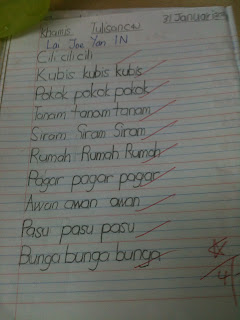 31 Januari
Khamis Tulisan
Lai Jae Yan 1N
Cili cili cili
Kubis kubis kubis
Pokok pokok pokok
Tanam tanam tanam
Siram Siram Siram
Rumah Rumah Rumah
Pagar pagar pagar
Awan awan awan
Pasu pasu pasu
Bunga bunga bunga
4